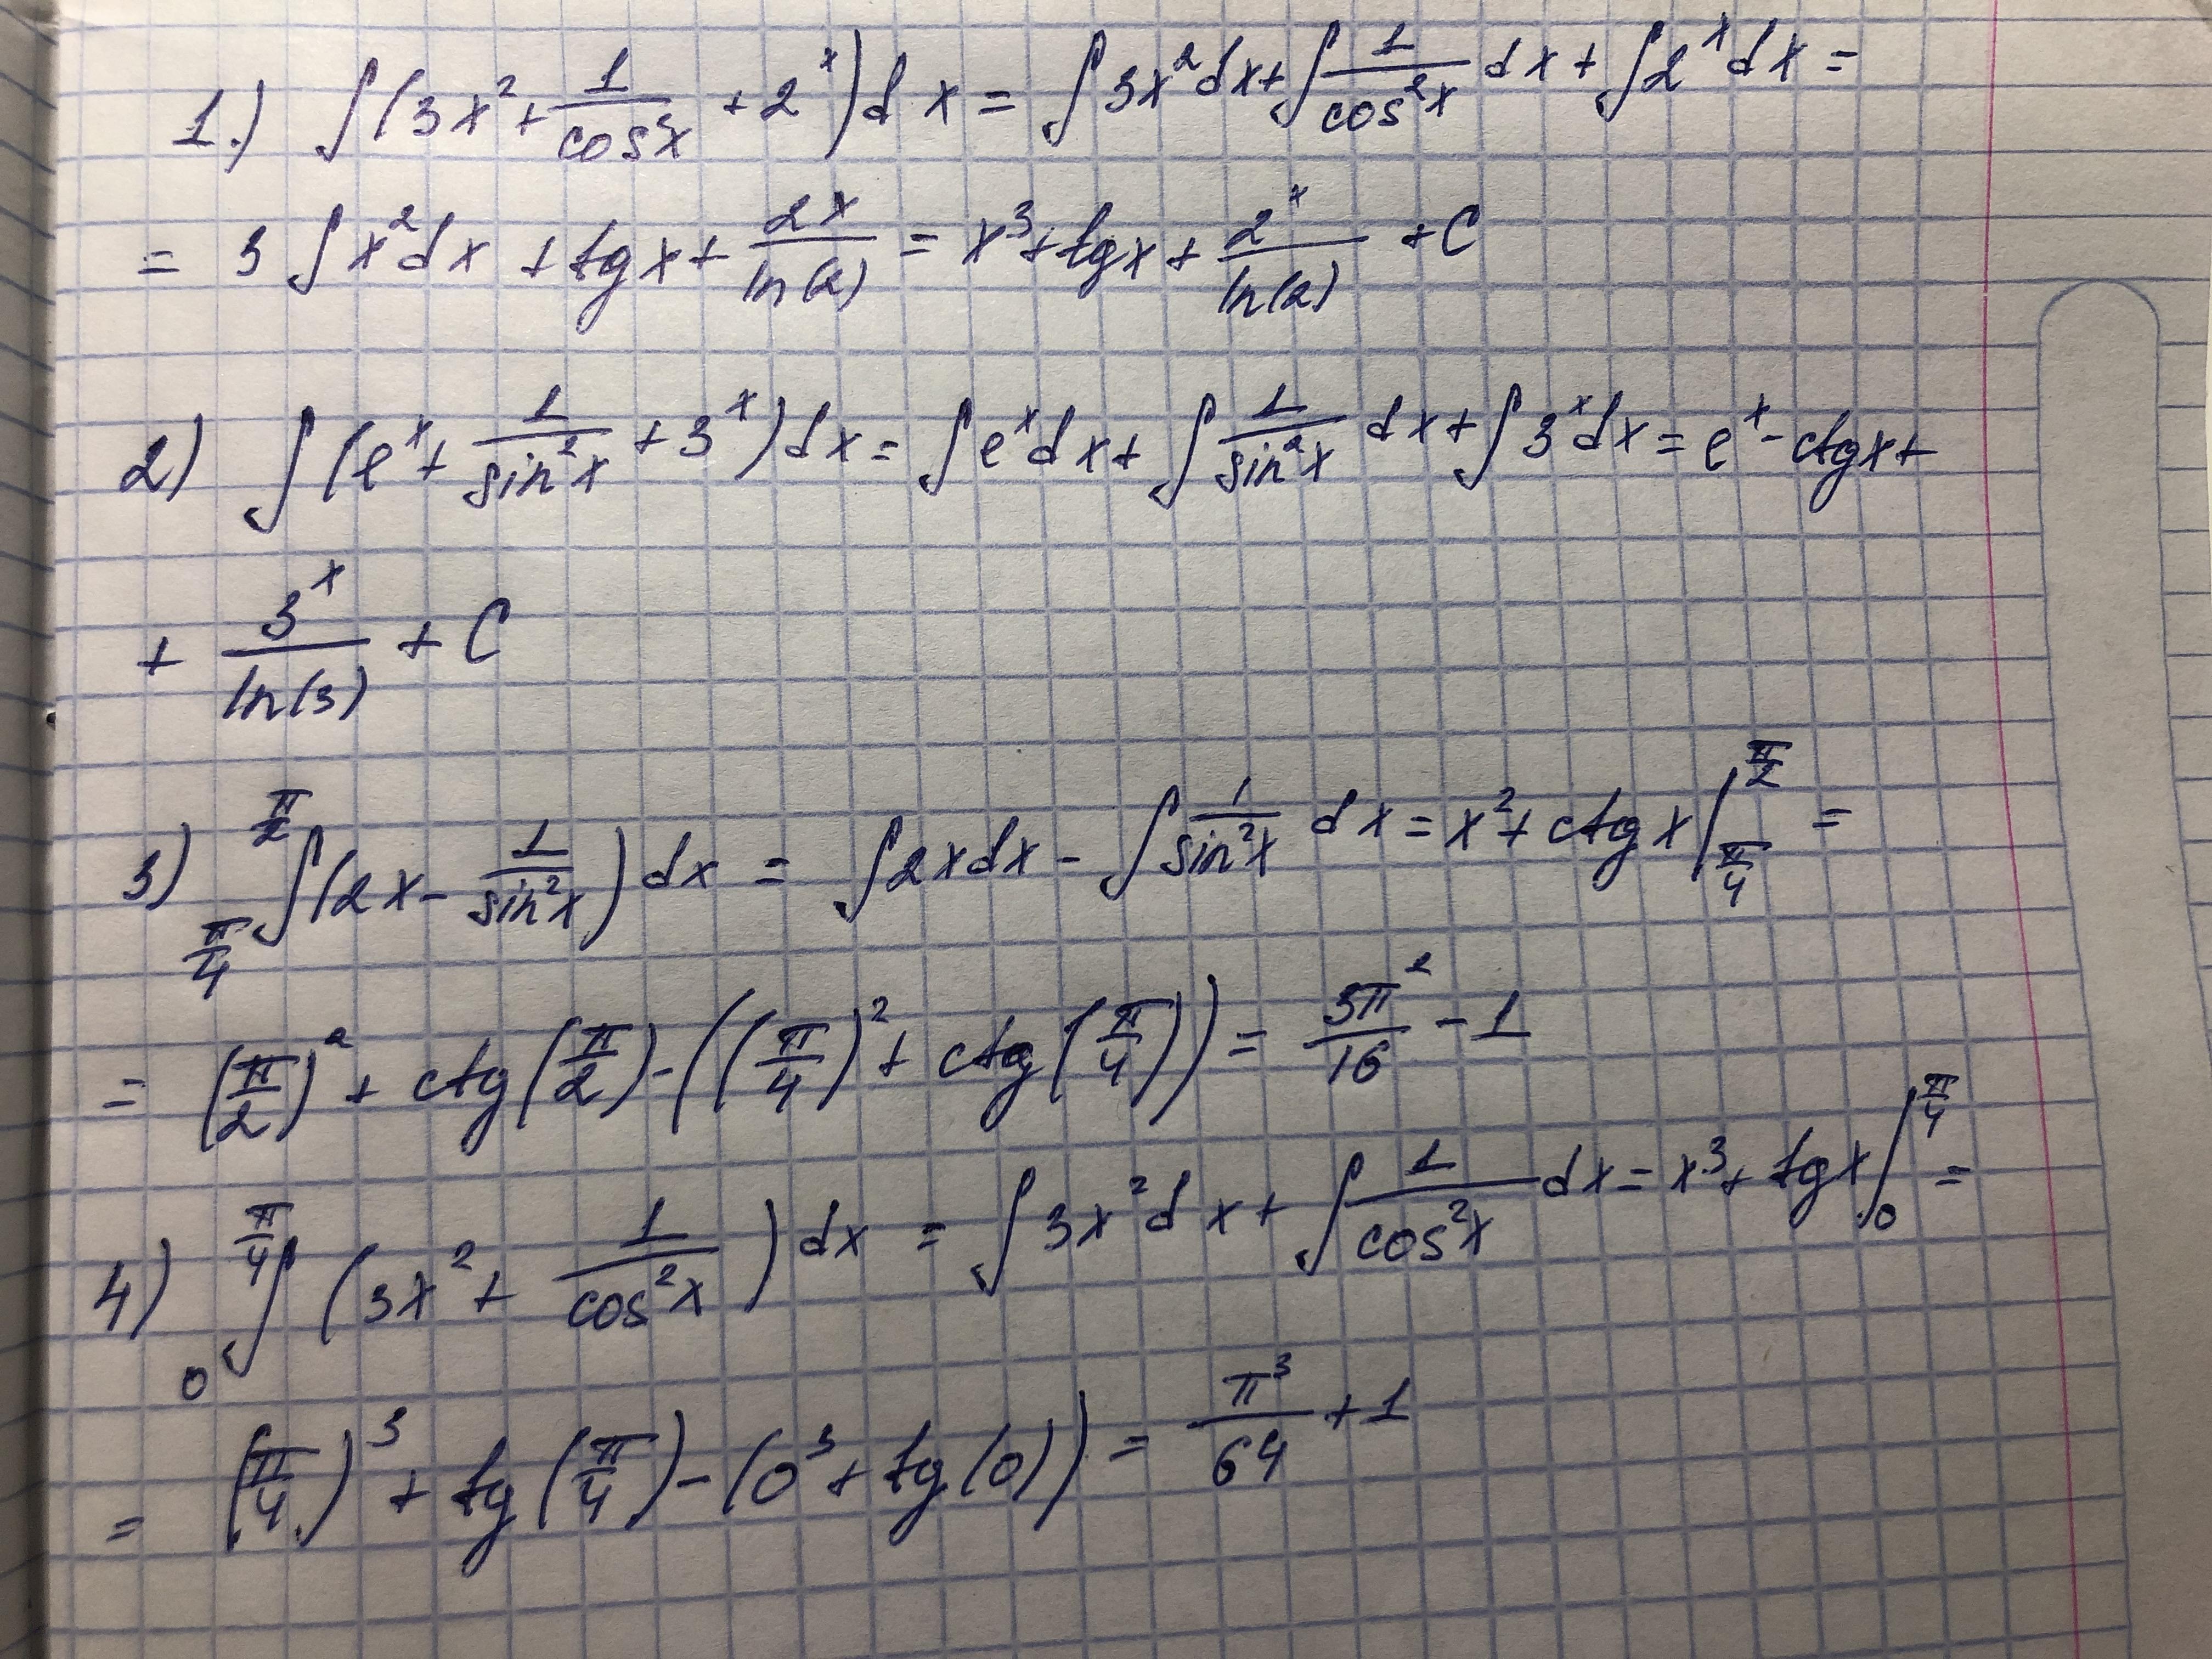 1.) ∫(3x² + 1/cos²x + 2ˣ)dx = ∫3x²dx + ∫1/cos²x dx + ∫2ˣdx =
= 3∫x²dx + tgx + 2ˣ/ln(2) = x³ + tgx + 2ˣ/ln(2) + C
2) ∫(eˣ + 1/sin²x + 3ˣ)dx = ∫eˣdx + ∫1/sin²x dx + ∫3ˣdx = eˣ - ctgx +
+ 3ˣ/ln(3) + C
3) ∫_{π/4}^{π/2}(2x - 1/sin²x)dx = ∫2xdx - ∫1/sin²x dx = x² + ctgx |_{π/4}^{π/2} =
= (π/2)² + ctg(π/2) - ((π/4)² + ctg(π/4)) = 3π²/16 - 1
4) ∫_{0}^{π/4}(3x² + 1/cos²x)dx = ∫3x²dx + ∫1/cos²x dx = x³ + tgx |_{0}^{π/4} =
= (π/4)³ + tg(π/4) - (0³ + tg(0)) = π³/64 + 1